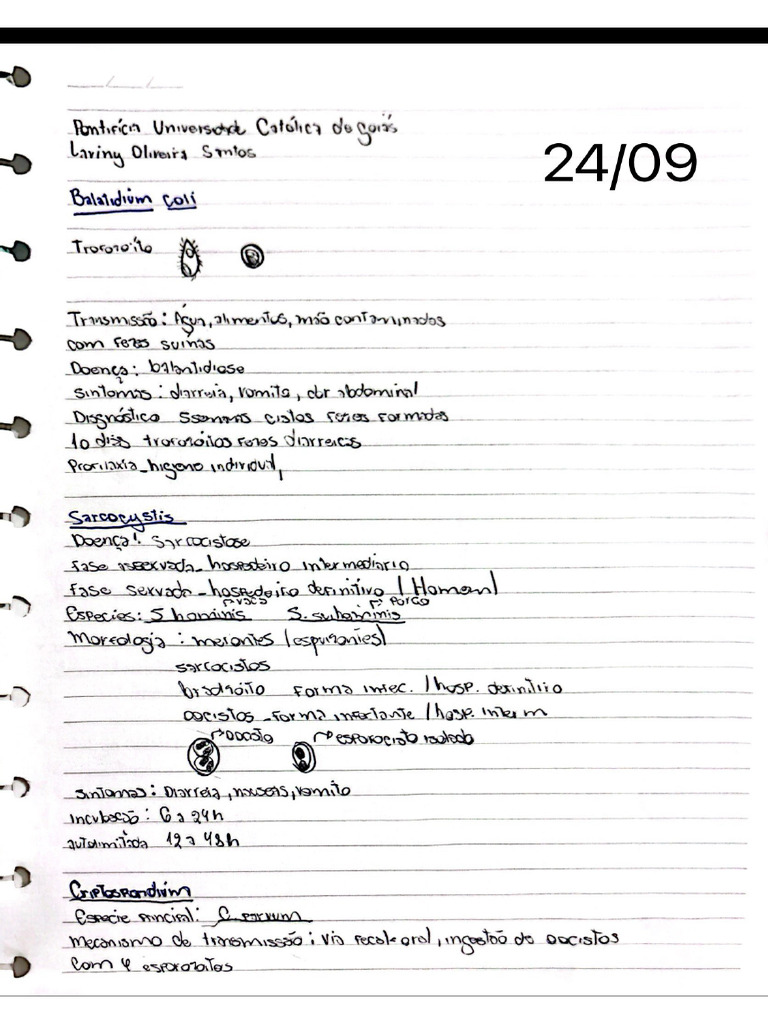 Pontifícia Universidade Católica de Goiás
Laviny Oliveira Santos
24/09
Balatidium coli
Trofozoíto
Transmissão: Água, alimentos, mão contaminados
com fezes suínas
Doença: balantidiose
sintomas: diarreia, vomito, dor abdominal
Diagnóstico cistos fezes formadas
10 dias trofozoítos fezes diarreicas
Profilaxia - higiene individual,
Sarcocystis
Doença: Sarcocistose
fase assexuada - hospedeiro intermediário
fase sexuada - hospedeiro definitivo (Homem)
vaca porco
Espécies: S hominis S. suihominis
Morfologia: merontes (esquizontes)
sarcocistos
bradizoíto forma infec. / hosp. definitivo
oocistos - forma infectante / hosp. interm
oocisto esporocisto isolado
sintomas: Diarreia, nauseas, vomito
incubação: 6 a 24h
autolimitada 12 a 48h
Criptosporidium
Espécie Principal: C. parvum
mecanismo de transmissão: via fecal-oral, ingestão de oocistos
com 4 esporozoítos